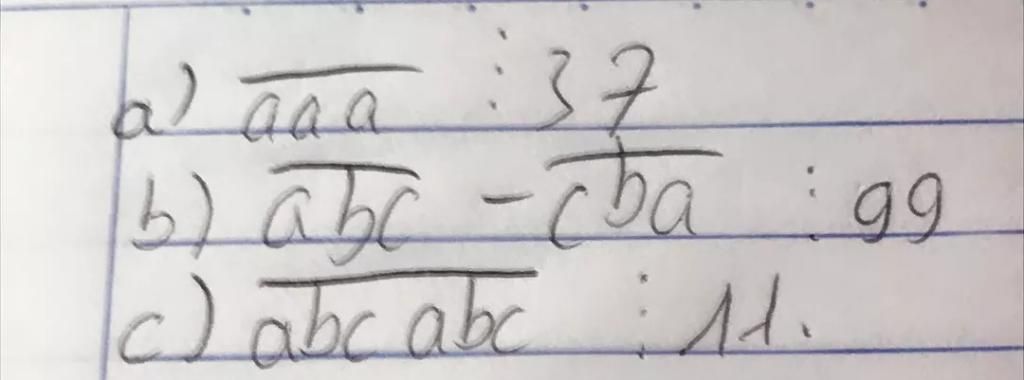 a) \overline{aaa} ⋮ 37
b) \overline{abc} - \overline{cba} ⋮ 99
c) \overline{abcabc} ⋮ 11.